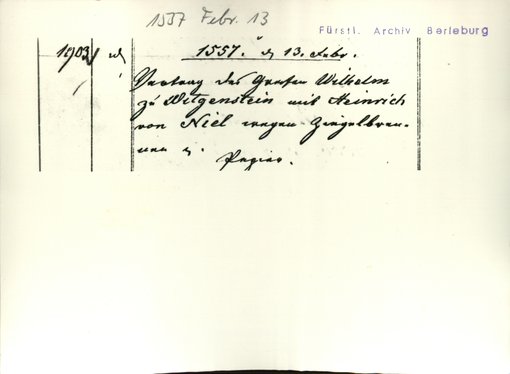 1557 Febr. 13
Fürstl. Archiv Berleburg
1903/ 1557. d 13. Febr.
Vertrag des Grafen Wilhelm
zu Witgenstein mit Heinrich
von Niel wegen Ziegelbren-
nen
Papier.